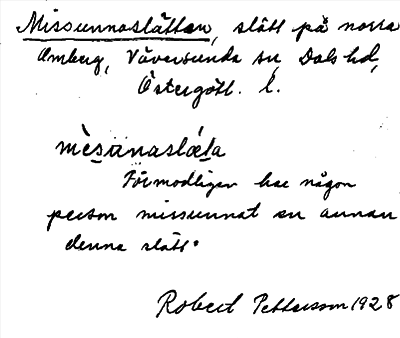 Missunnaslätten, slätt på norra
Omberg, Väversunda sn, Dals hd,
Östergötl. l.
mèsunaslǽta
Förmodligen har någon
person missunnat en annan
denna slätt.
Robert Pettersson 1928